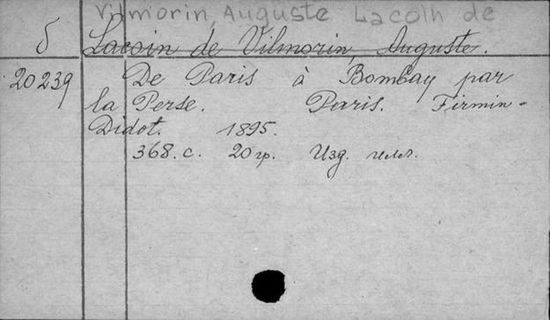 Vilmorin, Auguste Lacoin de
5 Lacoin de Vilmorin, Auguste.
20239 De Paris à Bombay par
la Perse. Paris. Firmin-
Didot. 1895.
368. с. 20 гр. Изд.